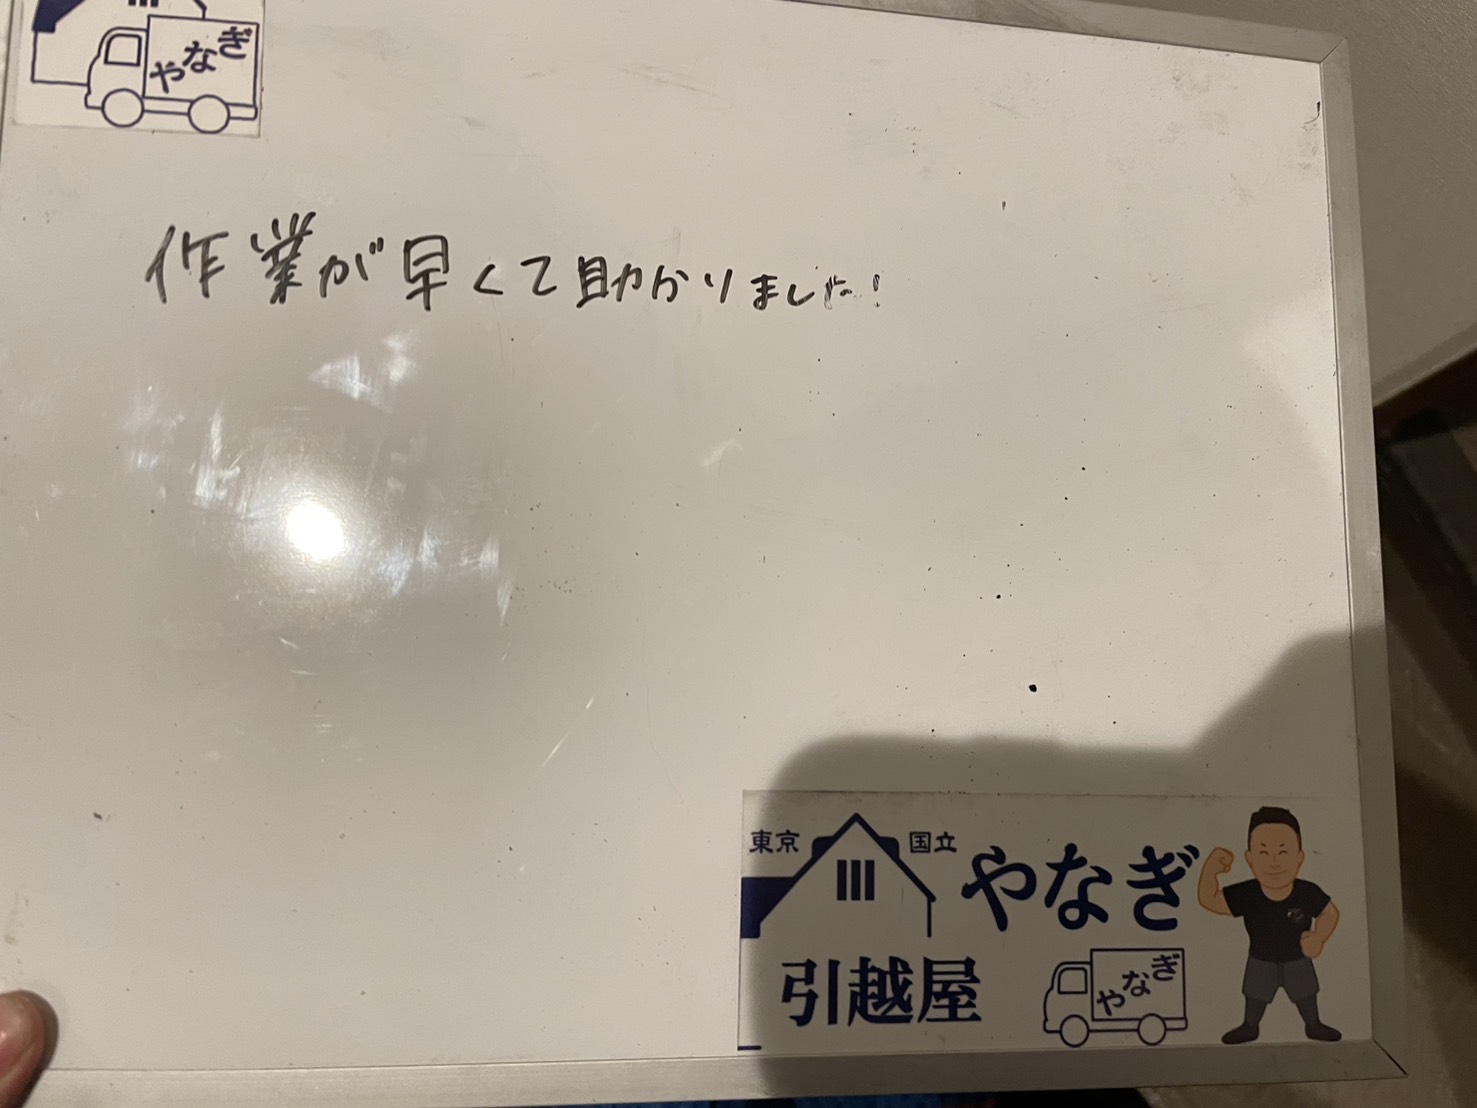 やなぎ
作業が早くて助かりました!
東京 国立 やなぎ
引越屋
やなぎ